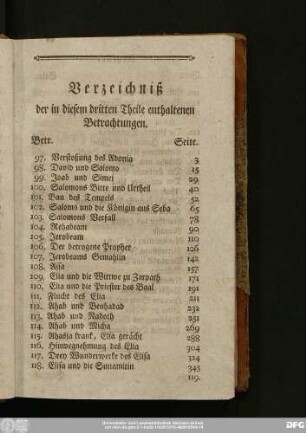 Verzeichniß
der in diesem dritten Theile enthaltenen
Betrachtungen.
Betr. Seite.
97. Verstoßung des Adonia 3
98. David und Salomo 15
99. Joab und Simei 29
100. Salomons Bitte und Urtheil 40
101. Bau des Tempels 52
102. Salomo und die Königin aus Seba 65
103. Salomons Verfall 78
104. Rehabeam 90
105. Jerobeam 110
106. Der betrogene Prophet 126
107. Jerobeams Gemahlin 142
108. Assa 157
109. Elia und die Wittwe zu Zarpath 171
110. Elia und die Priester des Baal 191
111. Flucht des Elia 211
112. Ahab und Benhadad 232
113. Ahab und Naboth 251
114. Ahab und Micha 269
115. Ahasja krank, Elia gerächt 288
116. Hinwegnehmung des Elia 304
117. Drey Wunderwerke des Elisa 324
118. Elisa und die Sunamitin 345
119.